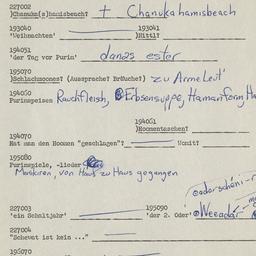 227002
)Chanuk(s)hamisbesch? + Chanukahamisbesch
193040 193041
'Weihnachten' )Nittl?
194051
'der Tag vor Purin' danas ester
195070
)Schlachmones? (Aussprache? Bräuche?) zu Armeleut'
194060
Purimspeisen Rauchfleisch, Erbsensuppe, Hamanform
194061
)Homentaschen?
194070
Hat man den Hooman "geschlagen"? Womit?
195080
Purimspiele, -lieder
Maskiren, von Haus zu Haus gegangen
227003 195090
'ein Schuljahr' 'der 2. Oder'
227004
"Schevet is kein ..."
196070